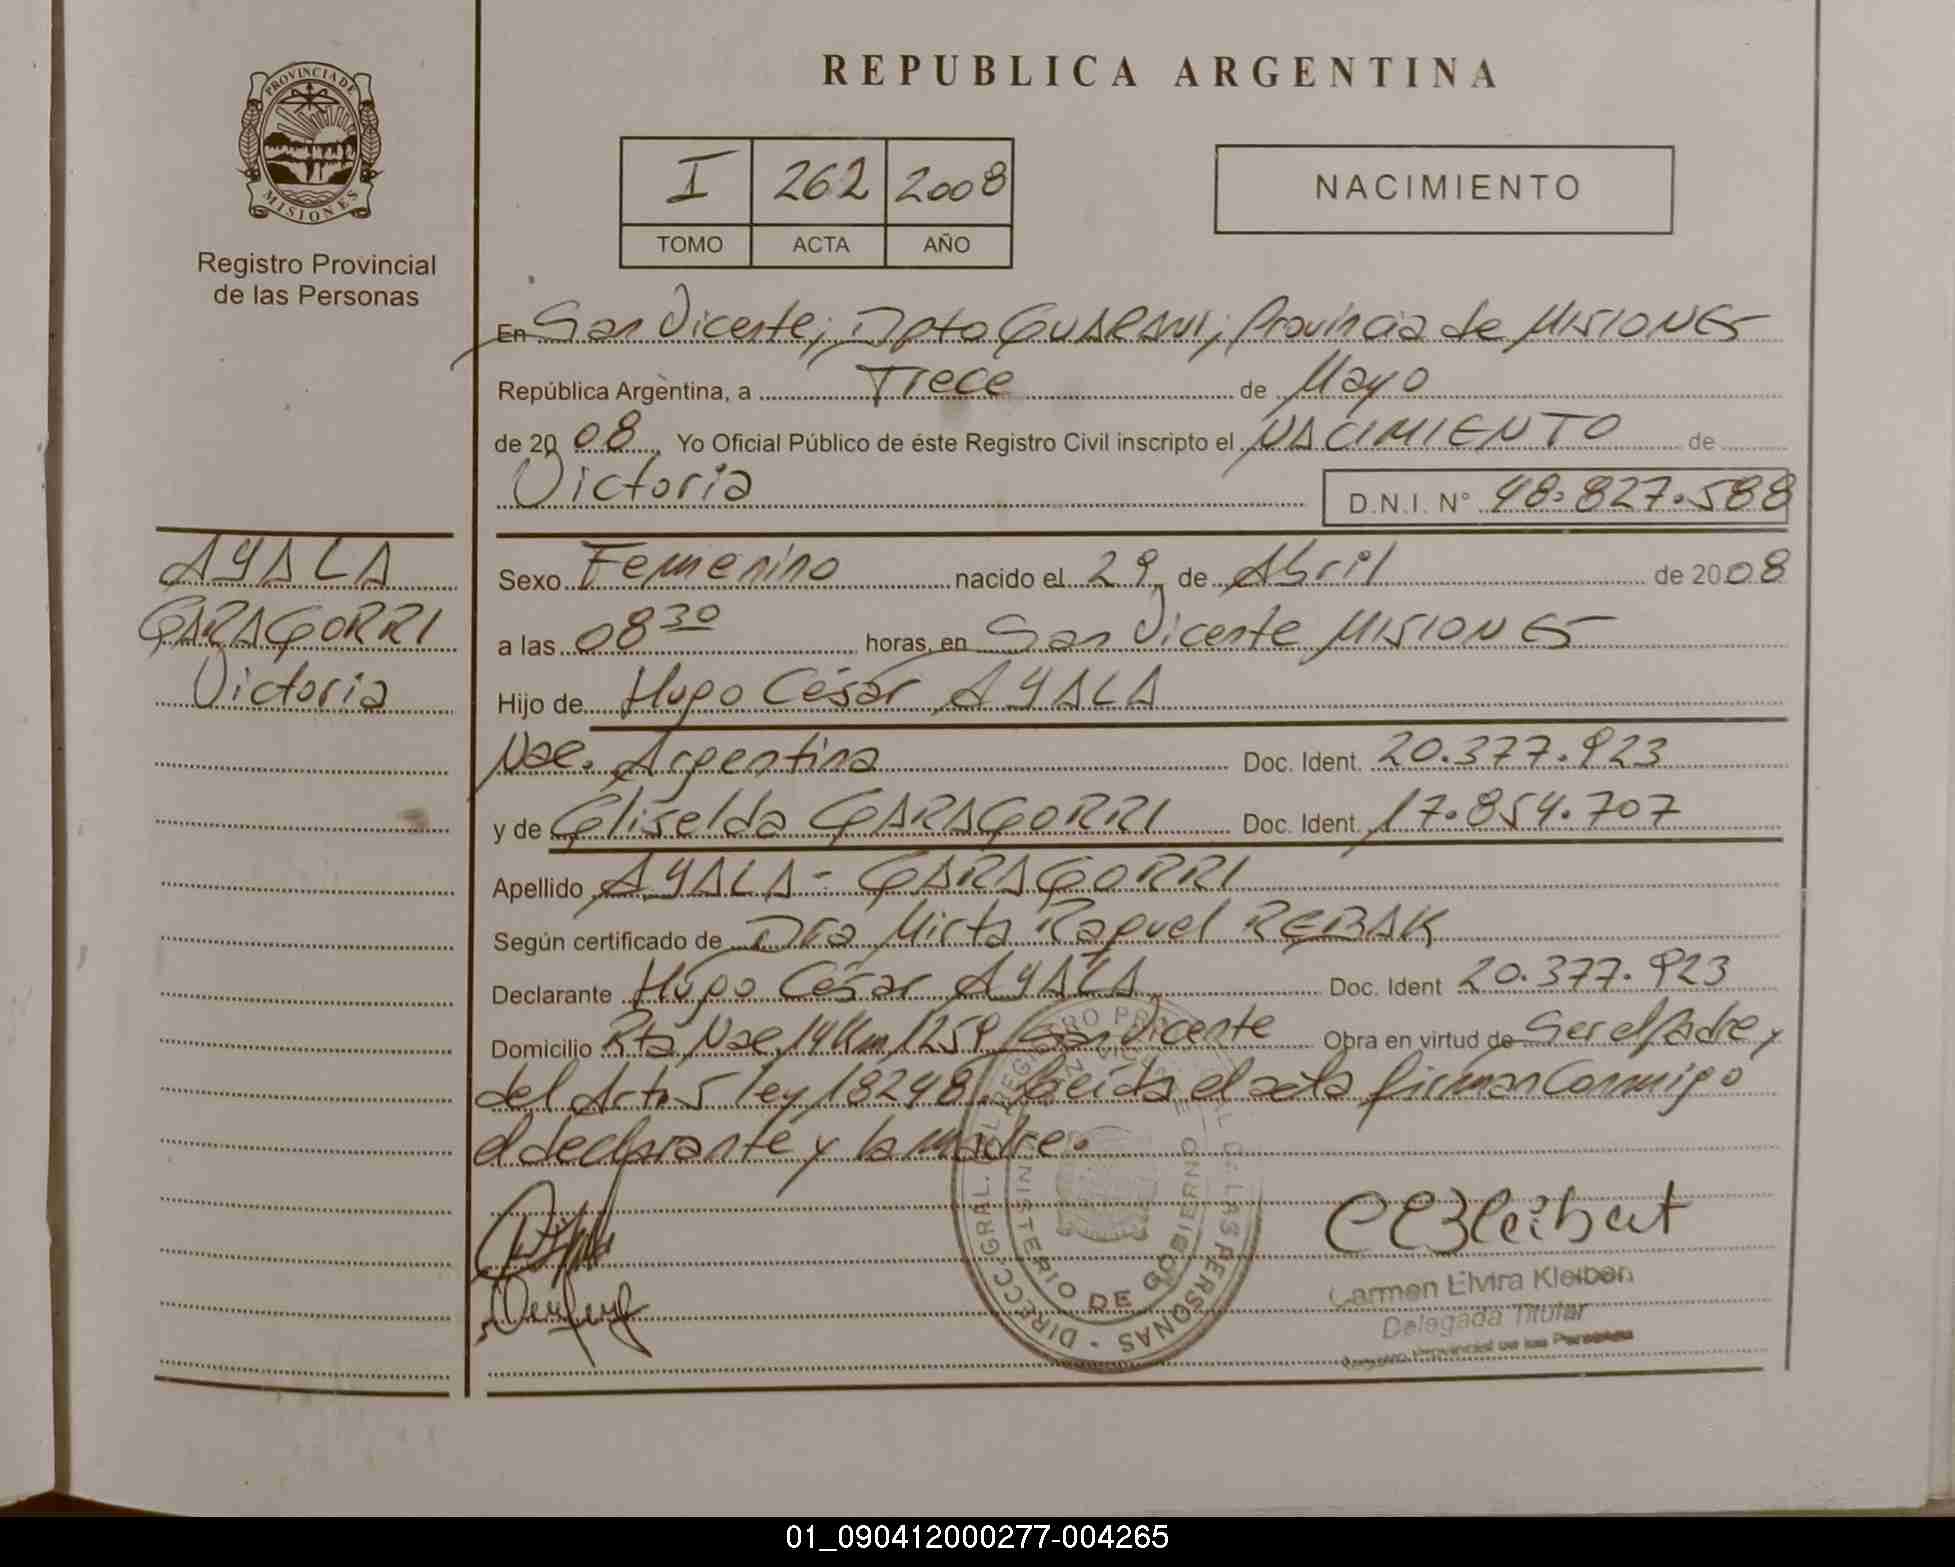 PROVINCIA DE
MISIONES
Registro Provincial
de las Personas
REPUBLICA ARGENTINA
I 262 2008
TOMO ACTA AÑO
NACIMIENTO
En San Vicente, Dpto GUARANI, Provincia de MISIONES
República Argentina, a Trece de Mayo
de 2008 Yo Oficial Público de éste Registro Civil inscripto el NACIMIENTO de
Victoria D.N.I. N° 48.827.588
AYALA
GARAGORRI
Victoria
Sexo Femenino nacido el 29 de Abril de 2008
a las 08 30 horas, en San Vicente MISIONES
Hijo de Hugo César AYALA
Nac. Argentina Doc. Ident. 20.377.923
y de Gliselda GARAGORRI Doc. Ident. 17.854.707
Apellido AYALA - GARAGORRI
Según certificado de Dra Mirta Raquel REBAK
Declarante Hugo César AYALA Doc. Ident 20.377.923
Domicilio Rta Nac 14 Km 1259 San Vicente Obra en virtud de Ser el Padre y
del Art. 5 ley 18248. Leída el acta firman Conmigo
el declarante y la madre.
DIRECC. GRAL. DEL REGISTRO PROV. DE LAS PERSONAS
MINISTERIO DE GOBIERNO
Carmen Elvira Kleiber
Delegada Titular
Registro Provincial de las Personas
01_090412000277-004265